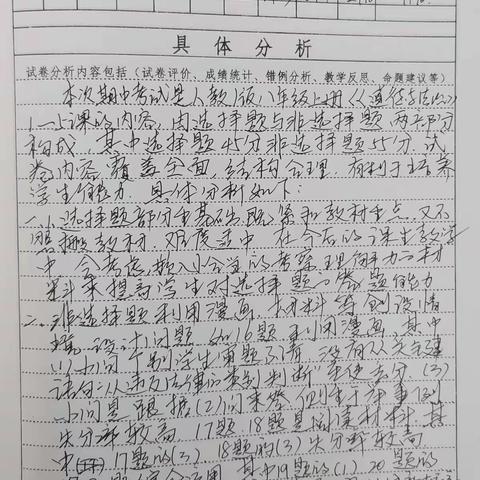 具体分析
试卷分析内容包括（试卷评价、成绩统计、错例分析、教学反思、命题建议等）
本次期中考试是人教版八年级上册《道德与法治》
1—上课的内容，由选择题与非选择题两部分
构成，其中选择题45分非选择题55分，试
卷内容覆盖全面，结构合理，有利于培养
学生能力，具体分析如下：
一、选择题部分重基础，既紧扣教材重点，又不
照搬教材，难度适中，在今后的课堂教学
中，会考虑，融入小众的考察理解力的材
料来提高学生对选择题的答题能力
二、非选择题利用漫画、材料等创设情
境，设计问题，如16题利用漫画，其中
(1)小问个别学生审题不清，没有从关键
语句：从违反法律的类别判断，致使丢分，(3)
小问是跟据(2)问来答，但学生于本事例
失分率较高，17题18题是阅读材料，其
中17题的(3)，18题的(3)失分率较高
其中19题的(1)，20题的